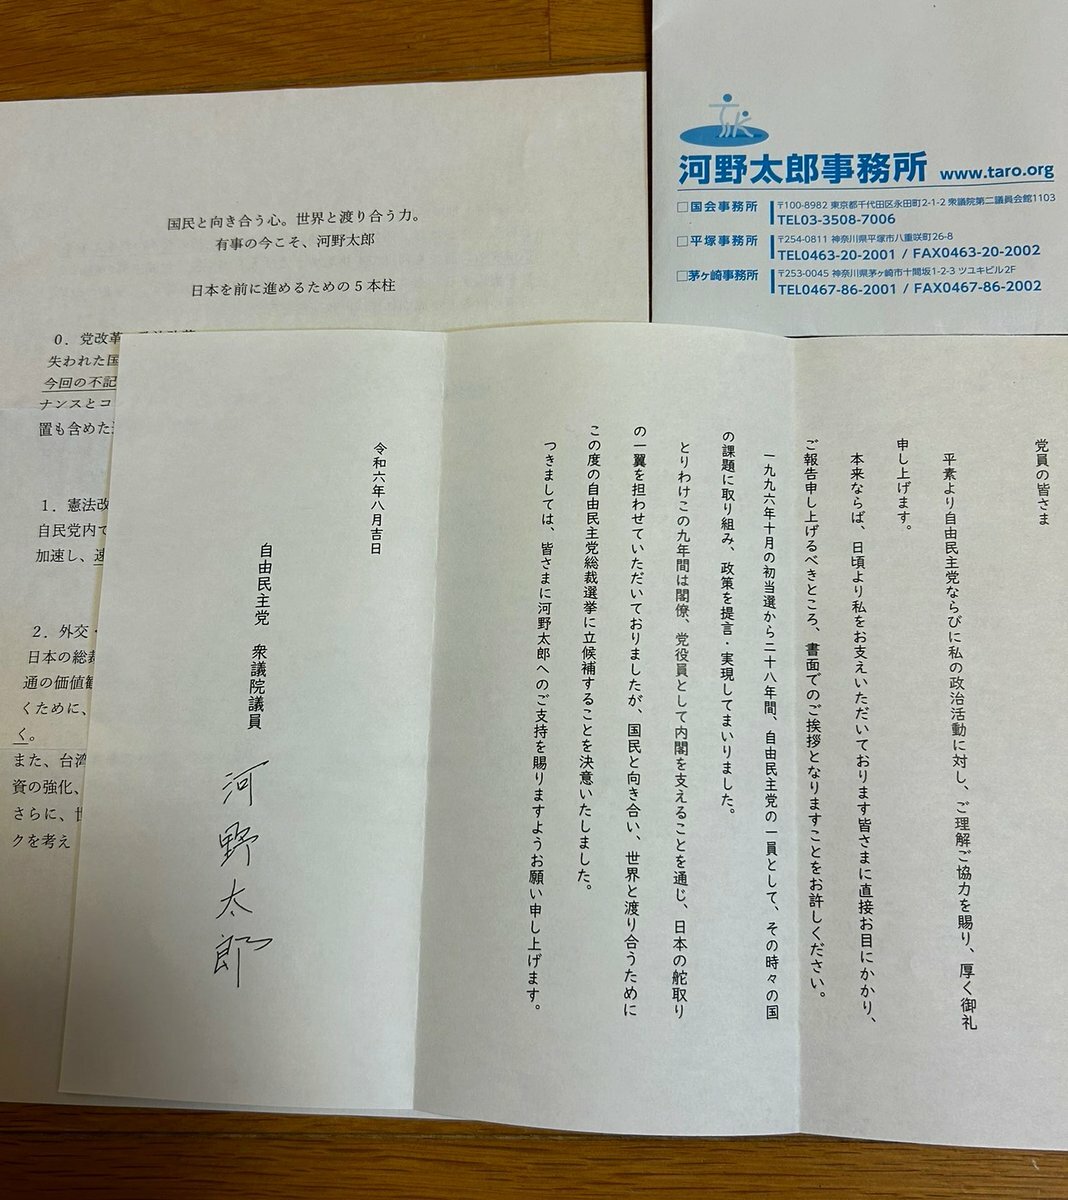 河野太郎事務所 www.taro.org
□国会事務所 〒100-8982 東京都千代田区永田町2-1-2 衆議院第二議員会館1103
TEL03-3508-7006
□平塚事務所 〒254-0811 神奈川県平塚市八重咲町26-8
TEL0463-20-2001 / FAX0463-20-2002
□茅ヶ崎事務所 〒253-0045 神奈川県茅ヶ崎市十間坂1-2-3 ツユキビル2F
TEL0467-86-2001 / FAX0467-86-2002
国民と向き合う心。世界と渡り合う力。
有事の今こそ、河野太郎
日本を前に進めるための5本柱
0．党改革
失われた国
今回の不記
ナンスとコ
置も含めた
1．憲法改
自民党内で
加速し、速
2．外交・
日本の総裁
通の価値観
くために、
く。
また、台湾
資の強化、
さらに、世
クを考え
党員の皆さま
平素より自由民主党ならびに私の政治活動に対し、ご理解ご協力を賜り、厚く御礼
申し上げます。
本来ならば、日頃より私をお支えいただいております皆さまに直接お目にかかり、
ご報告申し上げるべきところ、書面でのご挨拶となりますことをお許しください。
一九九六年十月の初当選から二十八年間、自由民主党の一員として、その時々の国
の課題に取り組み、政策を提言・実現してまいりました。
とりわけこの九年間は閣僚、党役員として内閣を支えることを通じ、日本の舵取り
の一翼を担わせていただいておりましたが、国民と向き合い、世界と渡り合うために
この度の自由民主党総裁選挙に立候補することを決意いたしました。
つきましては、皆さまに河野太郎へのご支持を賜りますようお願い申し上げます。
令和六年八月吉日
自由民主党 衆議院議員 河野太郎